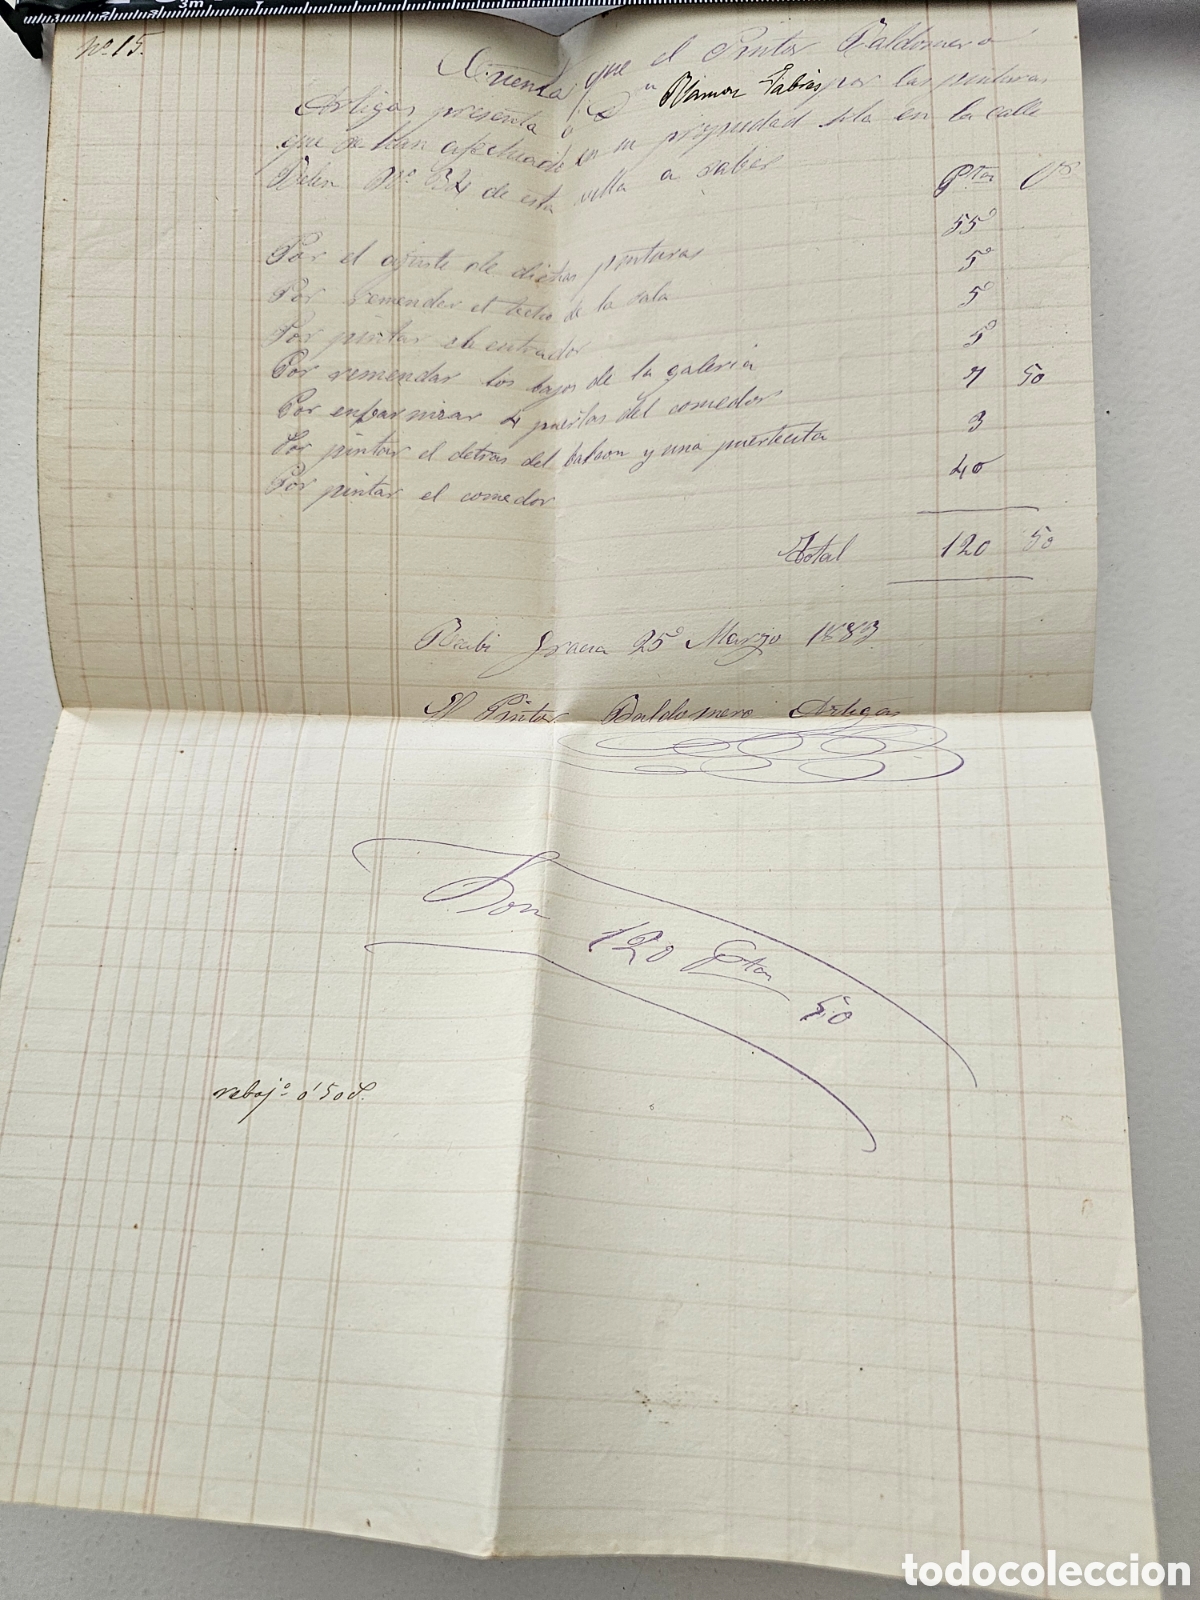 Nº 15.
Cuenta que el Pintor Baldomero
Artigas presenta a Dn Ramon Fabias por las pinturas
que se han efectuado en su propiedad sita en la calle
Belen Nº 34 de esta villa a saber
Ptas Cs
Por el ajuste de dichas pinturas 55º
Por remender el techo de la sala 5º
Por pintar el entrador 5º
Por remendar los bajos de la galeria 5º
Por enbarnisar 4 puertas del comedor 7 50
Por pintar el detras del balcon y una puertecita 3
Por pintar el comedor 40
Total 120 50
Recibi Gracia 25º Marzo 1883
El Pintor Baldomero Artigas
Son 120 Ptas 50
rebajº 0'50
todocoleccion